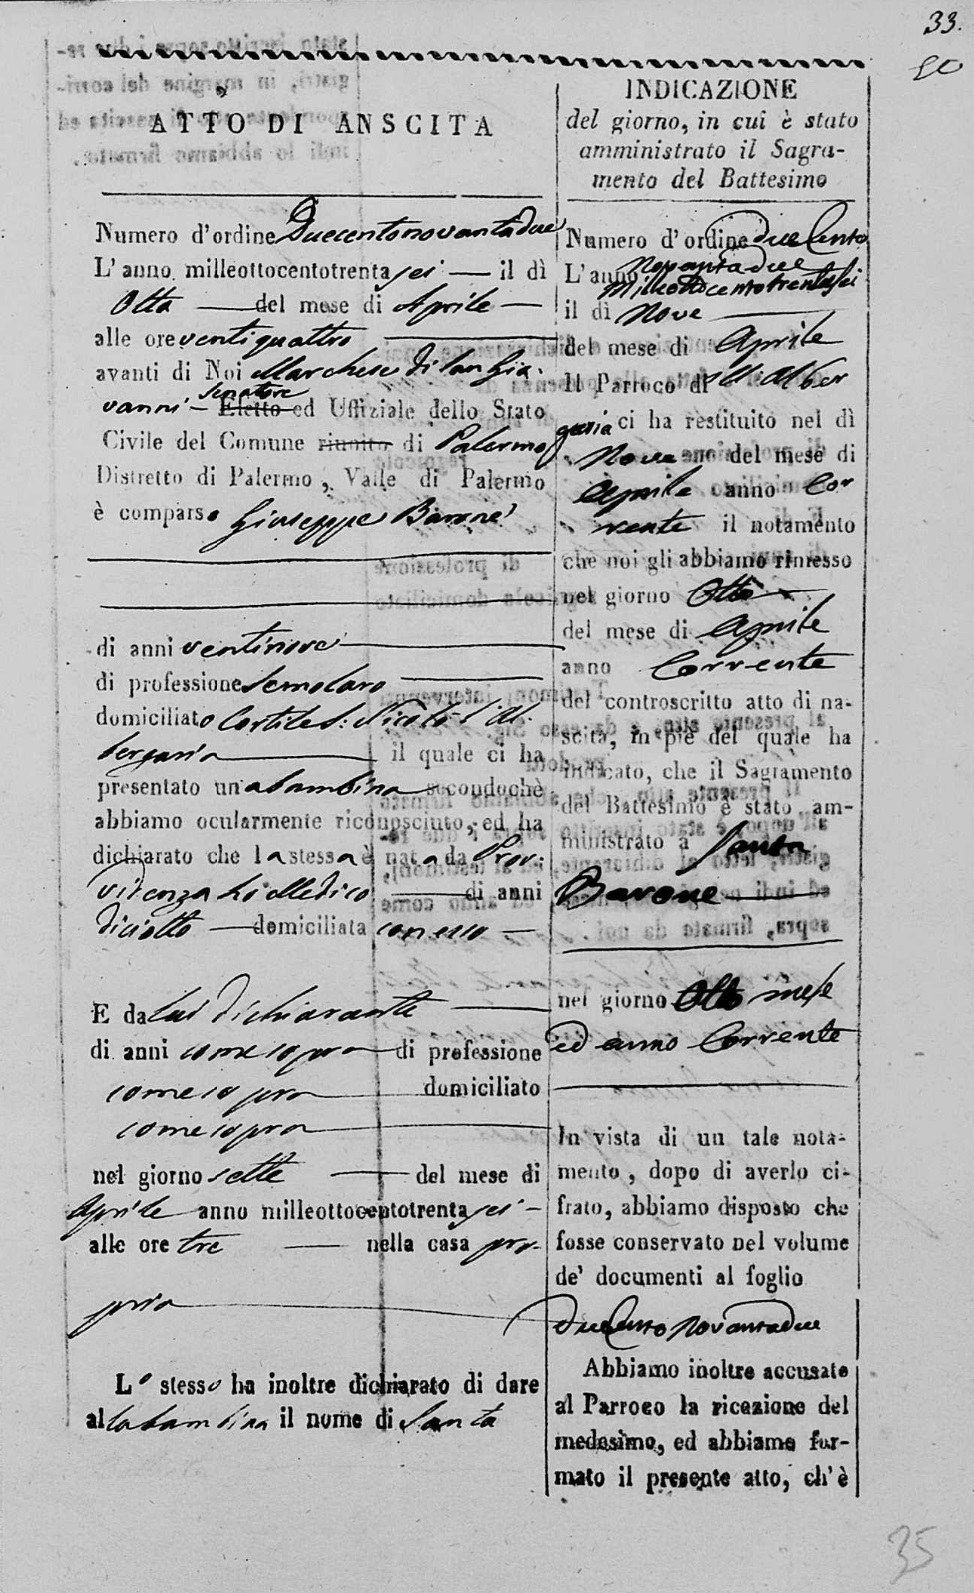 33.
50
ATTO DI ANSCITA
Numero d'ordine Duecentonovantadue
L'anno milleottocentotrentasei — il dì
Otto — del mese di Aprile —
alle ore ventiquattro
avanti di Noi Marchese di San Gio-
vanni — Senatore
Eletto ed Uffiziale dello Stato
Civile del Comune riunito di Palermo
Distretto di Palermo, Valle di Palermo
è comparso Giuseppe Barone
di anni ventinove
di professione Semolaro
domiciliato Cortile S. Nicolò l'Al-
bergaria il quale ci ha
presentato una bambina secondochè
abbiamo ocularmente riconosciuto, ed ha
dichiarato che la stessa è nata da Prov-
videnza Lo Medico — di anni
diciotto — domiciliata con esso —
E da lui dichiarante
di anni come sopra di professione
come sopra domiciliato
come sopra
nel giorno sette — del mese di
Aprile anno milleottocentotrentasei —
alle ore tre — nella casa pro-
pria
Lo stesso ha inoltre dichiarato di dare
alla bambina il nome di Santa
INDICAZIONE
del giorno, in cui è stato
amministrato il Sagra-
mento del Battesimo
Numero d'ordine duecento
novantadue
L'anno Milleottocentotrentasei
il dì Nove
del mese di Aprile
Il Parroco di Alber
garia ci ha restituito nel dì
Nove del mese di
Aprile anno Cor
rente il notamento
che noi gli abbiamo rimesso
nel giorno Otto
del mese di Aprile
anno Corrente
del controscritto atto di na-
scita, in piè del quale ha
indicato, che il Sagramento
del Battesimo è stato am-
ministrato a Santa
Barone
nel giorno Otto mese
ed anno Corrente
In vista di un tale nota-
mento, dopo di averlo ci-
frato, abbiamo disposto che
fosse conservato nel volume
de' documenti al foglio
duecento novantadue
Abbiamo inoltre accusato
al Parroco la ricezione del
medesimo, ed abbiamo for-
mato il presente atto, ch'è
35